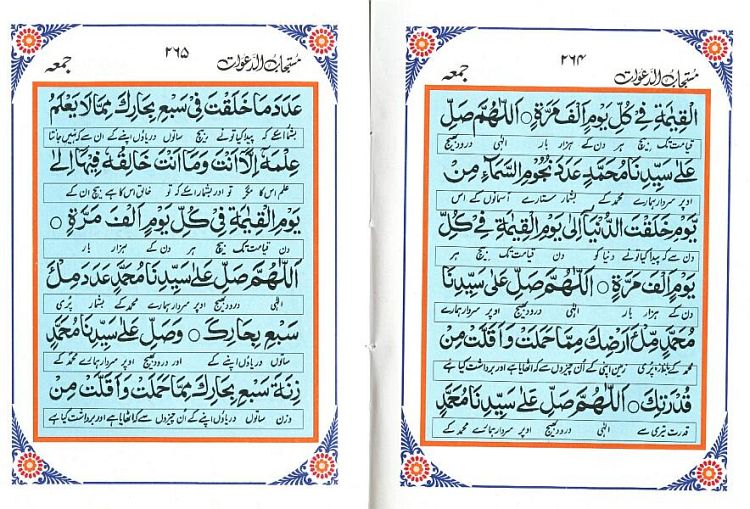 ٢٦٤
مستجاب الدعوات
جمعه
الْقِيٰمَةِ فِيْ كُلِّ يَوْمٍ اَلْفَ مَرَّةٍ ○ اَللّٰهُمَّ صَلِّ
قیامت تک بیچ ہر دن کے ہزار بار الٰہی درود بھیج
عَلٰى سَيِّدِنَا مُحَمَّدٍ عَدَدَ نُجُوْمِ السَّمَآءِ مِنْ
اوپر سردار ہمارے محمد کے بشمار ستارے آسمانوں کے اس
يَّوْمٍ خَلَقْتَ الدُّنْيَآ اِلٰى يَوْمِ الْقِيٰمَةِ فِيْ كُلِّ
دن سے کہ پیدا کیا تونے دنیا کو دن قیامت تک بیچ ہر
يَوْمٍ اَلْفَ مَرَّةٍ ○ اَللّٰهُمَّ صَلِّ عَلٰى سَيِّدِنَا
دن کے ہزار بار الٰہی درود بھیج اوپر سردار ہمارے
مُحَمَّدٍ مِّلْءَ اَرْضِكَ مِمَّا حَمَلَتْ وَاَقَلَّتْ مِنْ
محمد کے پُری زمین اپنی کے اُن چیزوں سے کہ اٹھایا ہے اور برداشت کیا ہے
قُدْرَتِكَ ○ اَللّٰهُمَّ صَلِّ عَلٰى سَيِّدِنَا مُحَمَّدٍ
قدرت تیری سے الٰہی درود بھیج اوپر سردار ہمارے محمد کے
٢٦٥
مستجاب الدعوات
جمعه
عَدَدَ مَا خَلَقْتَ فِيْ سَبْعِ بِحَارِكَ مِمَّا لَا يَعْلَمُ
بشمار اسکے کہ پیدا کیا تونے بیچ ساتوں دریاؤں اپنے کے ان سے کہ نہیں جانتا
عِلْمَهٗٓ اِلَّآ اَنْتَ وَمَآ اَنْتَ خَالِقُهٗ فِيْهَآ اِلٰى
علم اس کا مگر تو اور بشمار اسکے کہ تو خالق اس کا ہے بیچ ان کے
يَوْمِ الْقِيٰمَةِ فِيْ كُلِّ يَوْمٍ اَلْفَ مَرَّةٍ ○
دن قیامت تک بیچ ہر دن کے ہزار بار
اَللّٰهُمَّ صَلِّ عَلٰى سَيِّدِنَا مُحَمَّدٍ عَدَدَ مِلْءِ
الٰہی درود بھیج اوپر سردار ہمارے محمد کے بشمار پُری
سَبْعِ بِحَارِكَ ○ وَصَلِّ عَلٰى سَيِّدِنَا مُحَمَّدٍ
ساتوں دریاؤں اپنے کے اور درود بھیج اوپر سردار ہمارے محمد کے
زِنَةَ سَبْعِ بِحَارِكَ مِمَّا حَمَلَتْ وَاَقَلَّتْ مِنْ
وزن ساتوں دریاؤں اپنے کے اُن چیزوں سے کہ اٹھایا ہے اور برداشت کیا ہے